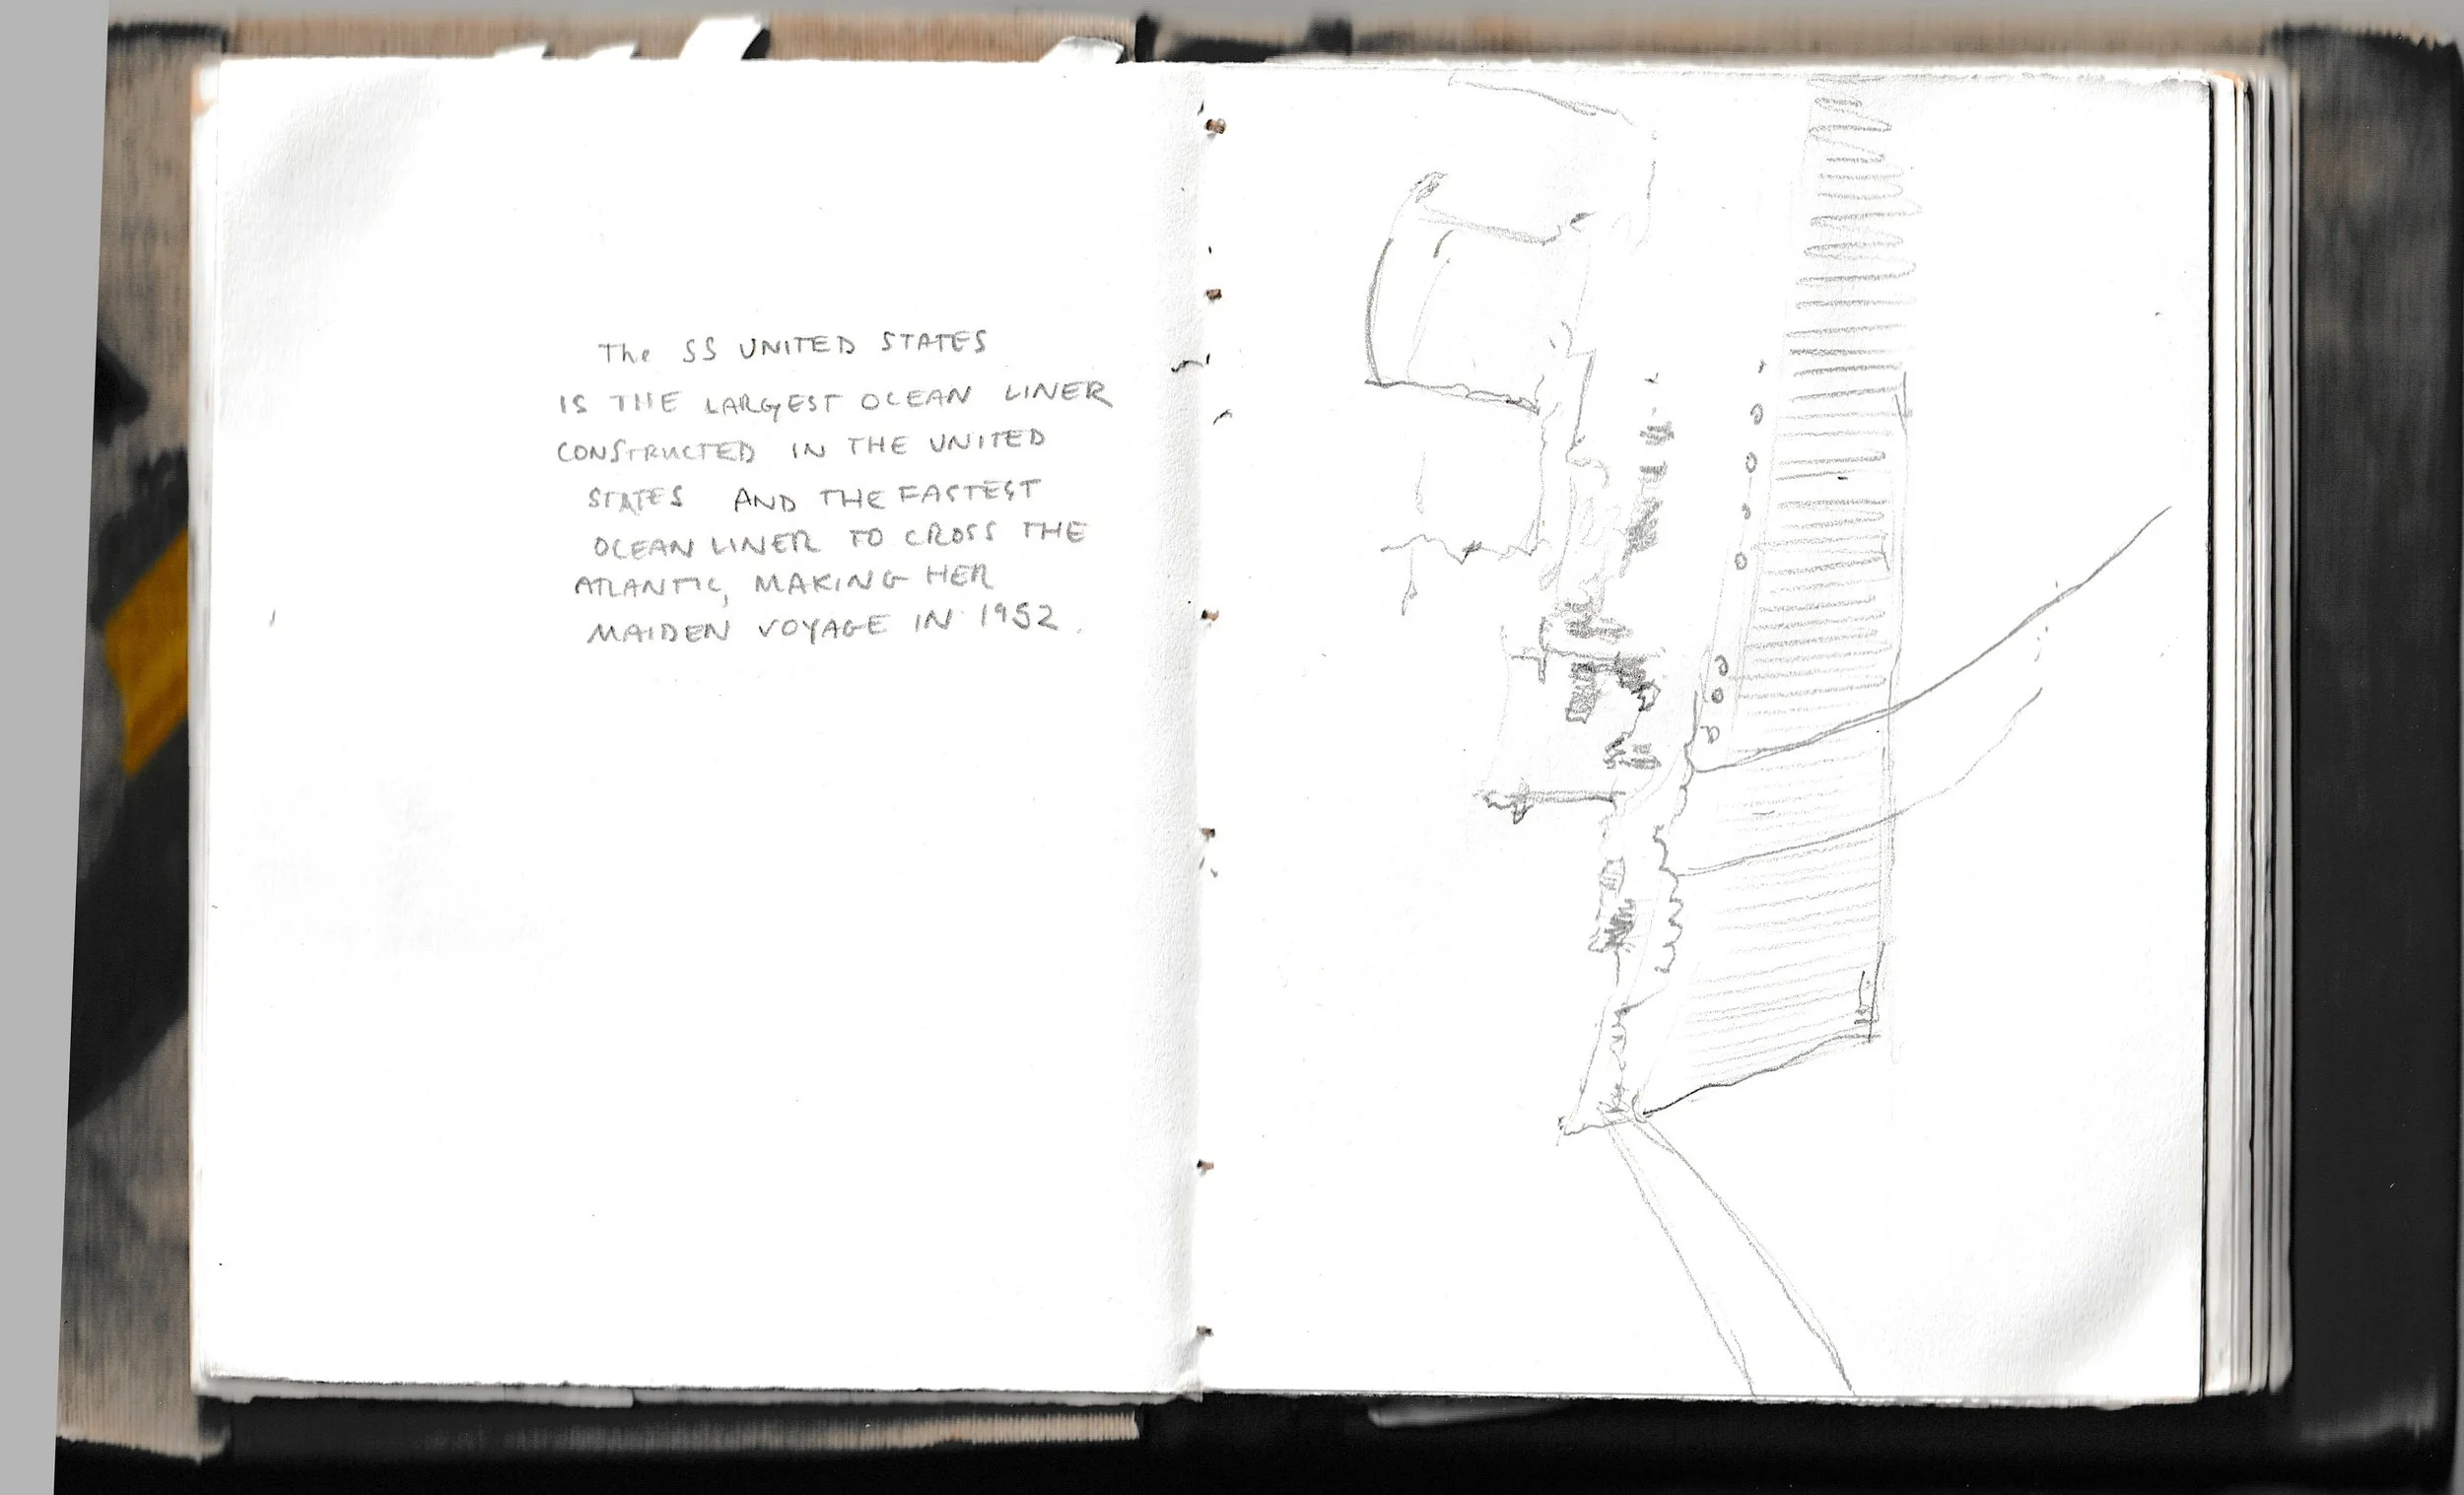 The SS UNITED STATES
IS THE LARGEST OCEAN LINER
CONSTRUCTED IN THE UNITED
STATES AND THE FASTEST
OCEAN LINER TO CROSS THE
ATLANTIC, MAKING HER
MAIDEN VOYAGE IN 1952.